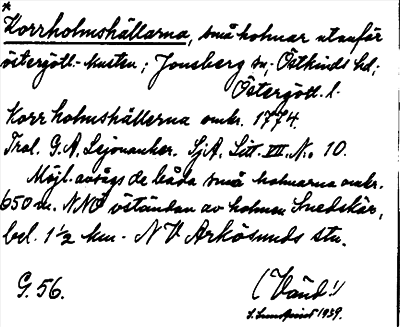 *
Korrholmshällarna, små holmar utanför
östergötl.-kusten; Jonsberg sn; Östkinds hd;
Östergötl. l.
Korrholmshällerna omkr. 1774.
Tral. G.A. Lejonanker. SjA. Litt. VII. No 10.
Möjl. avsågs de båda små holmarna omkr.
650 m. NNO öständan av holmen Snedskär,
bel. 1 1/2 km. NV Arkösunds stn.
G. 56.
(Vänd!)
S. Lundqvist 1939.